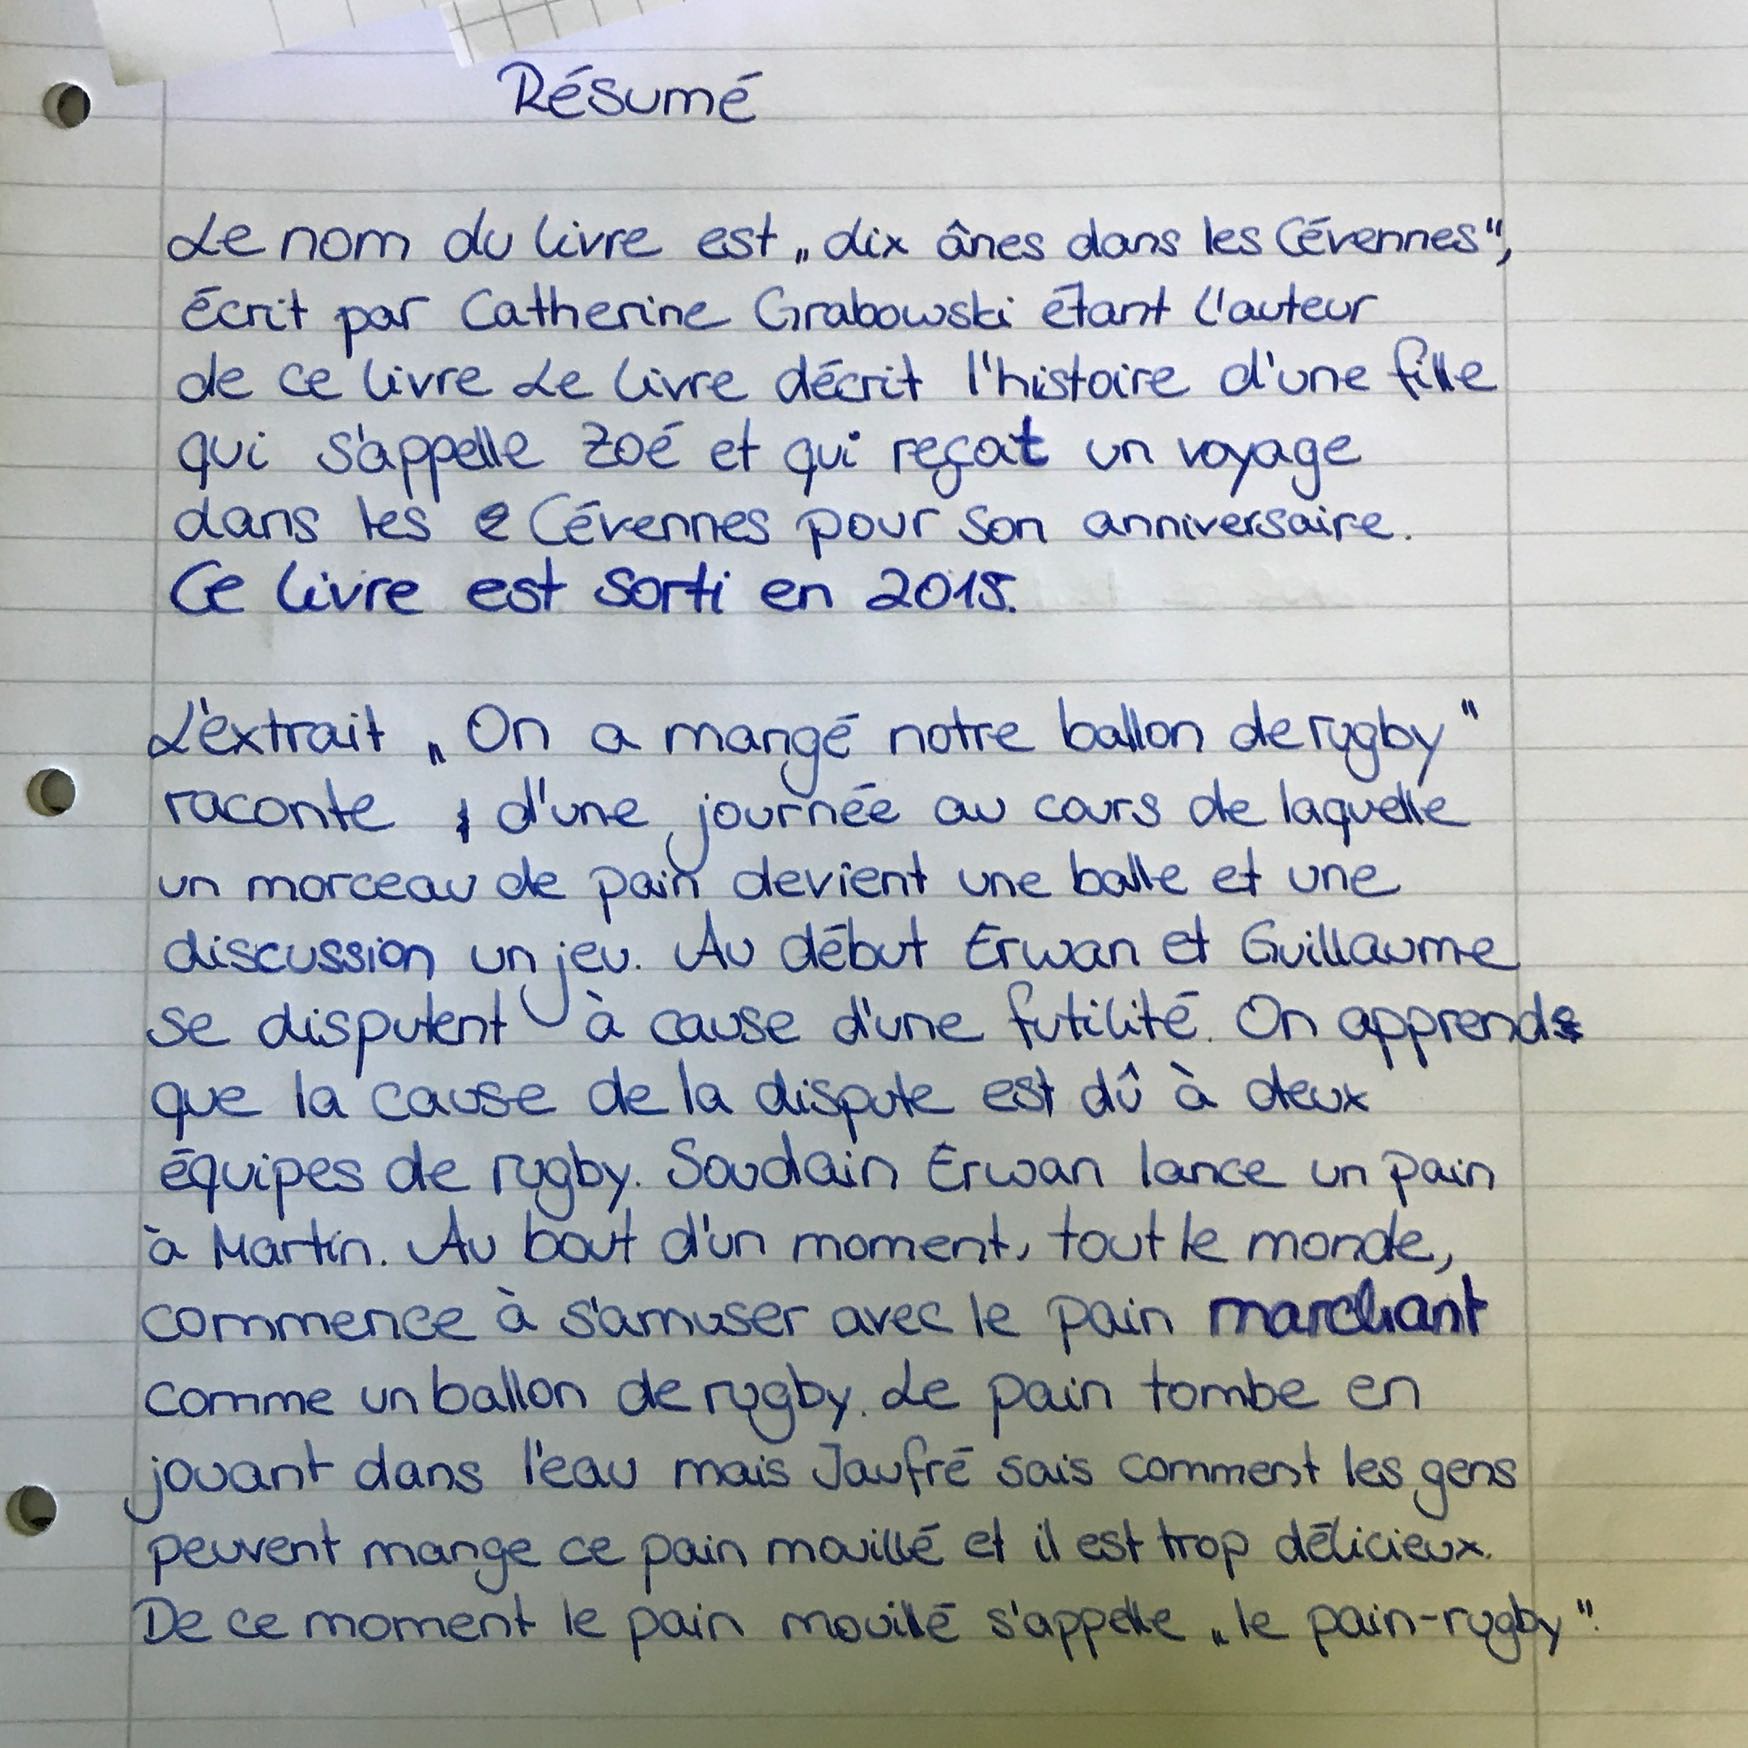 Résumé
Le nom du livre est „dix ânes dans les Cévennes“,
écrit par Catherine Grabowski étant l'auteur
de ce livre Le livre décrit l'histoire d'une fille
qui s'appelle Zoé et qui reçat un voyage
dans les Cévennes pour son anniversaire.
Ce livre est sorti en 2015.
L'extrait „On a mangé notre ballon de rygby“
raconte d'une journée au cours de laquelle
un morceau de pain devient une balle et une
discussion un jeu. Au début Erwan et Guillaume
se disputent à cause d'une futilité. On apprends
que la cause de la dispute est dû à deux
équipes de rygby. Soudain Erwan lance un pain
à Martin. Au bout d'un moment, tout le monde,
commence à s'amuser avec le pain marchant
comme un ballon de rygby. Le pain tombe en
jouant dans l'eau mais Jaufré sais comment les gens
peuvent mange ce pain mouillé et il est trop délicieux.
De ce moment le pain mouillé s'appelle „le pain-rygby“.